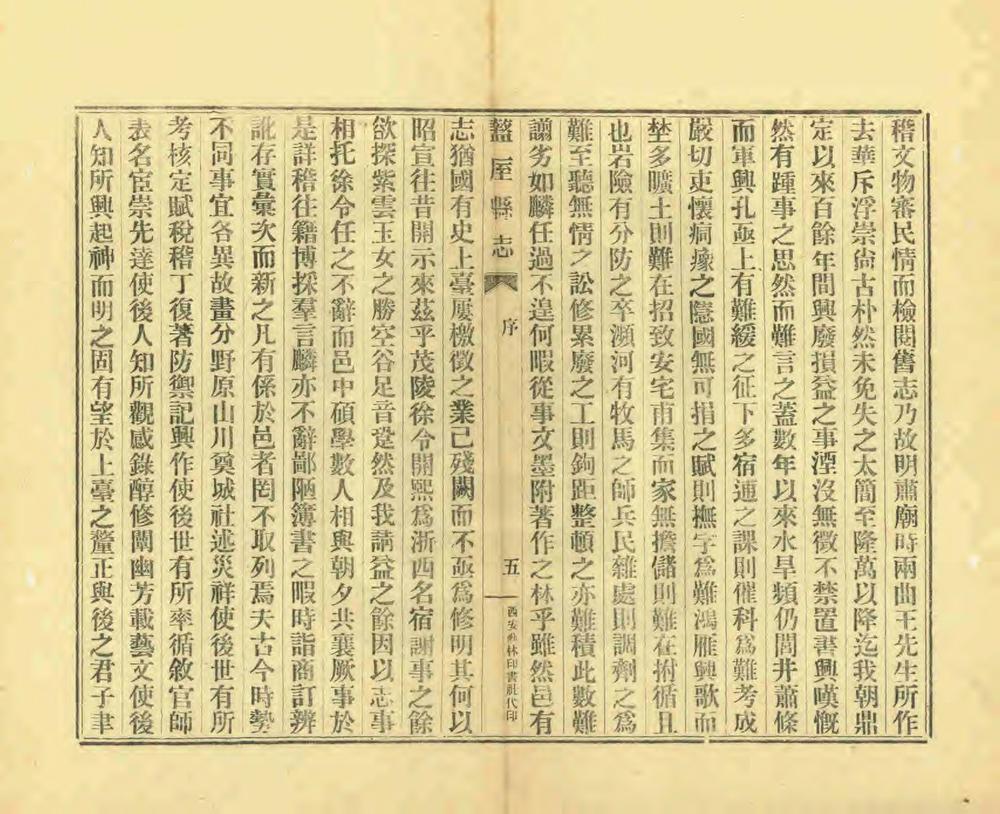 稽文物審民情而檢閱舊志乃故明肅廟時兩曲王先生所作
去華斥浮崇尙古朴然未免失之太簡至隆萬以降迄我朝鼎
定以來百餘年間興廢損益之事湮沒無徵不禁置書興嘆慨
然有踵事之思然而難言之蓋數年以來水旱頻仍閭井蕭條
而軍興孔亟上有難緩之征下多宿逋之課則催科爲難考成
嚴切吏懷痌瘝之隱國無可捐之賦則撫字爲難鴻雁興歌而
坐多曠土則難在招致安宅甫集而家無擔儲則難在拊循且
也岩險有分防之卒瀕河有牧馬之師兵民雜處則調劑之爲
難至聽無情之訟修累廢之工則鉤距整頓之亦難積此數難
謭劣如麟任過不遑何暇從事文墨附著作之林乎雖然邑有
盩厔縣志
序
五
西安林印書社代印
志猶國有史上臺屢檄徵之業已殘闕而不亟爲修明其何以
昭宣往昔開示來茲乎茂陵徐令開熙爲浙西名宿謝事之餘
欲探紫雲玉女之勝空谷足音跫然及我請益之餘因以志事
相托徐令任之不辭而邑中碩學數人相與朝夕共襄厥事於
是詳稽往籍博採羣言麟亦不辭鄙陋簿書之暇時詣商訂辨
訛存實彙次而新之凡有係於邑者罔不取列焉夫古今時勢
不同事宜各異故畫分野原山川奠城社述災祥使後世有所
考核定賦稅稽丁復著防禦記興作使後世有所率循敘官師
表名宦崇先達使後人知所觀感錄醇修闡幽芳載藝文使後
人知所興起神而明之固有望於上臺之釐正與後之君子聿